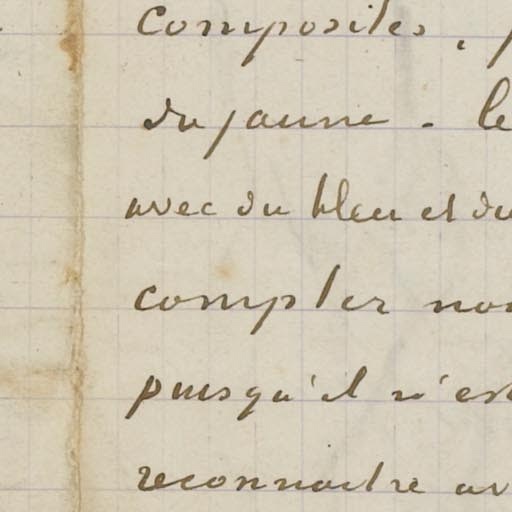 composites,
du jaune - le
avec du bleu et du
compter non
puisqu'il n'est
reconnaitre av